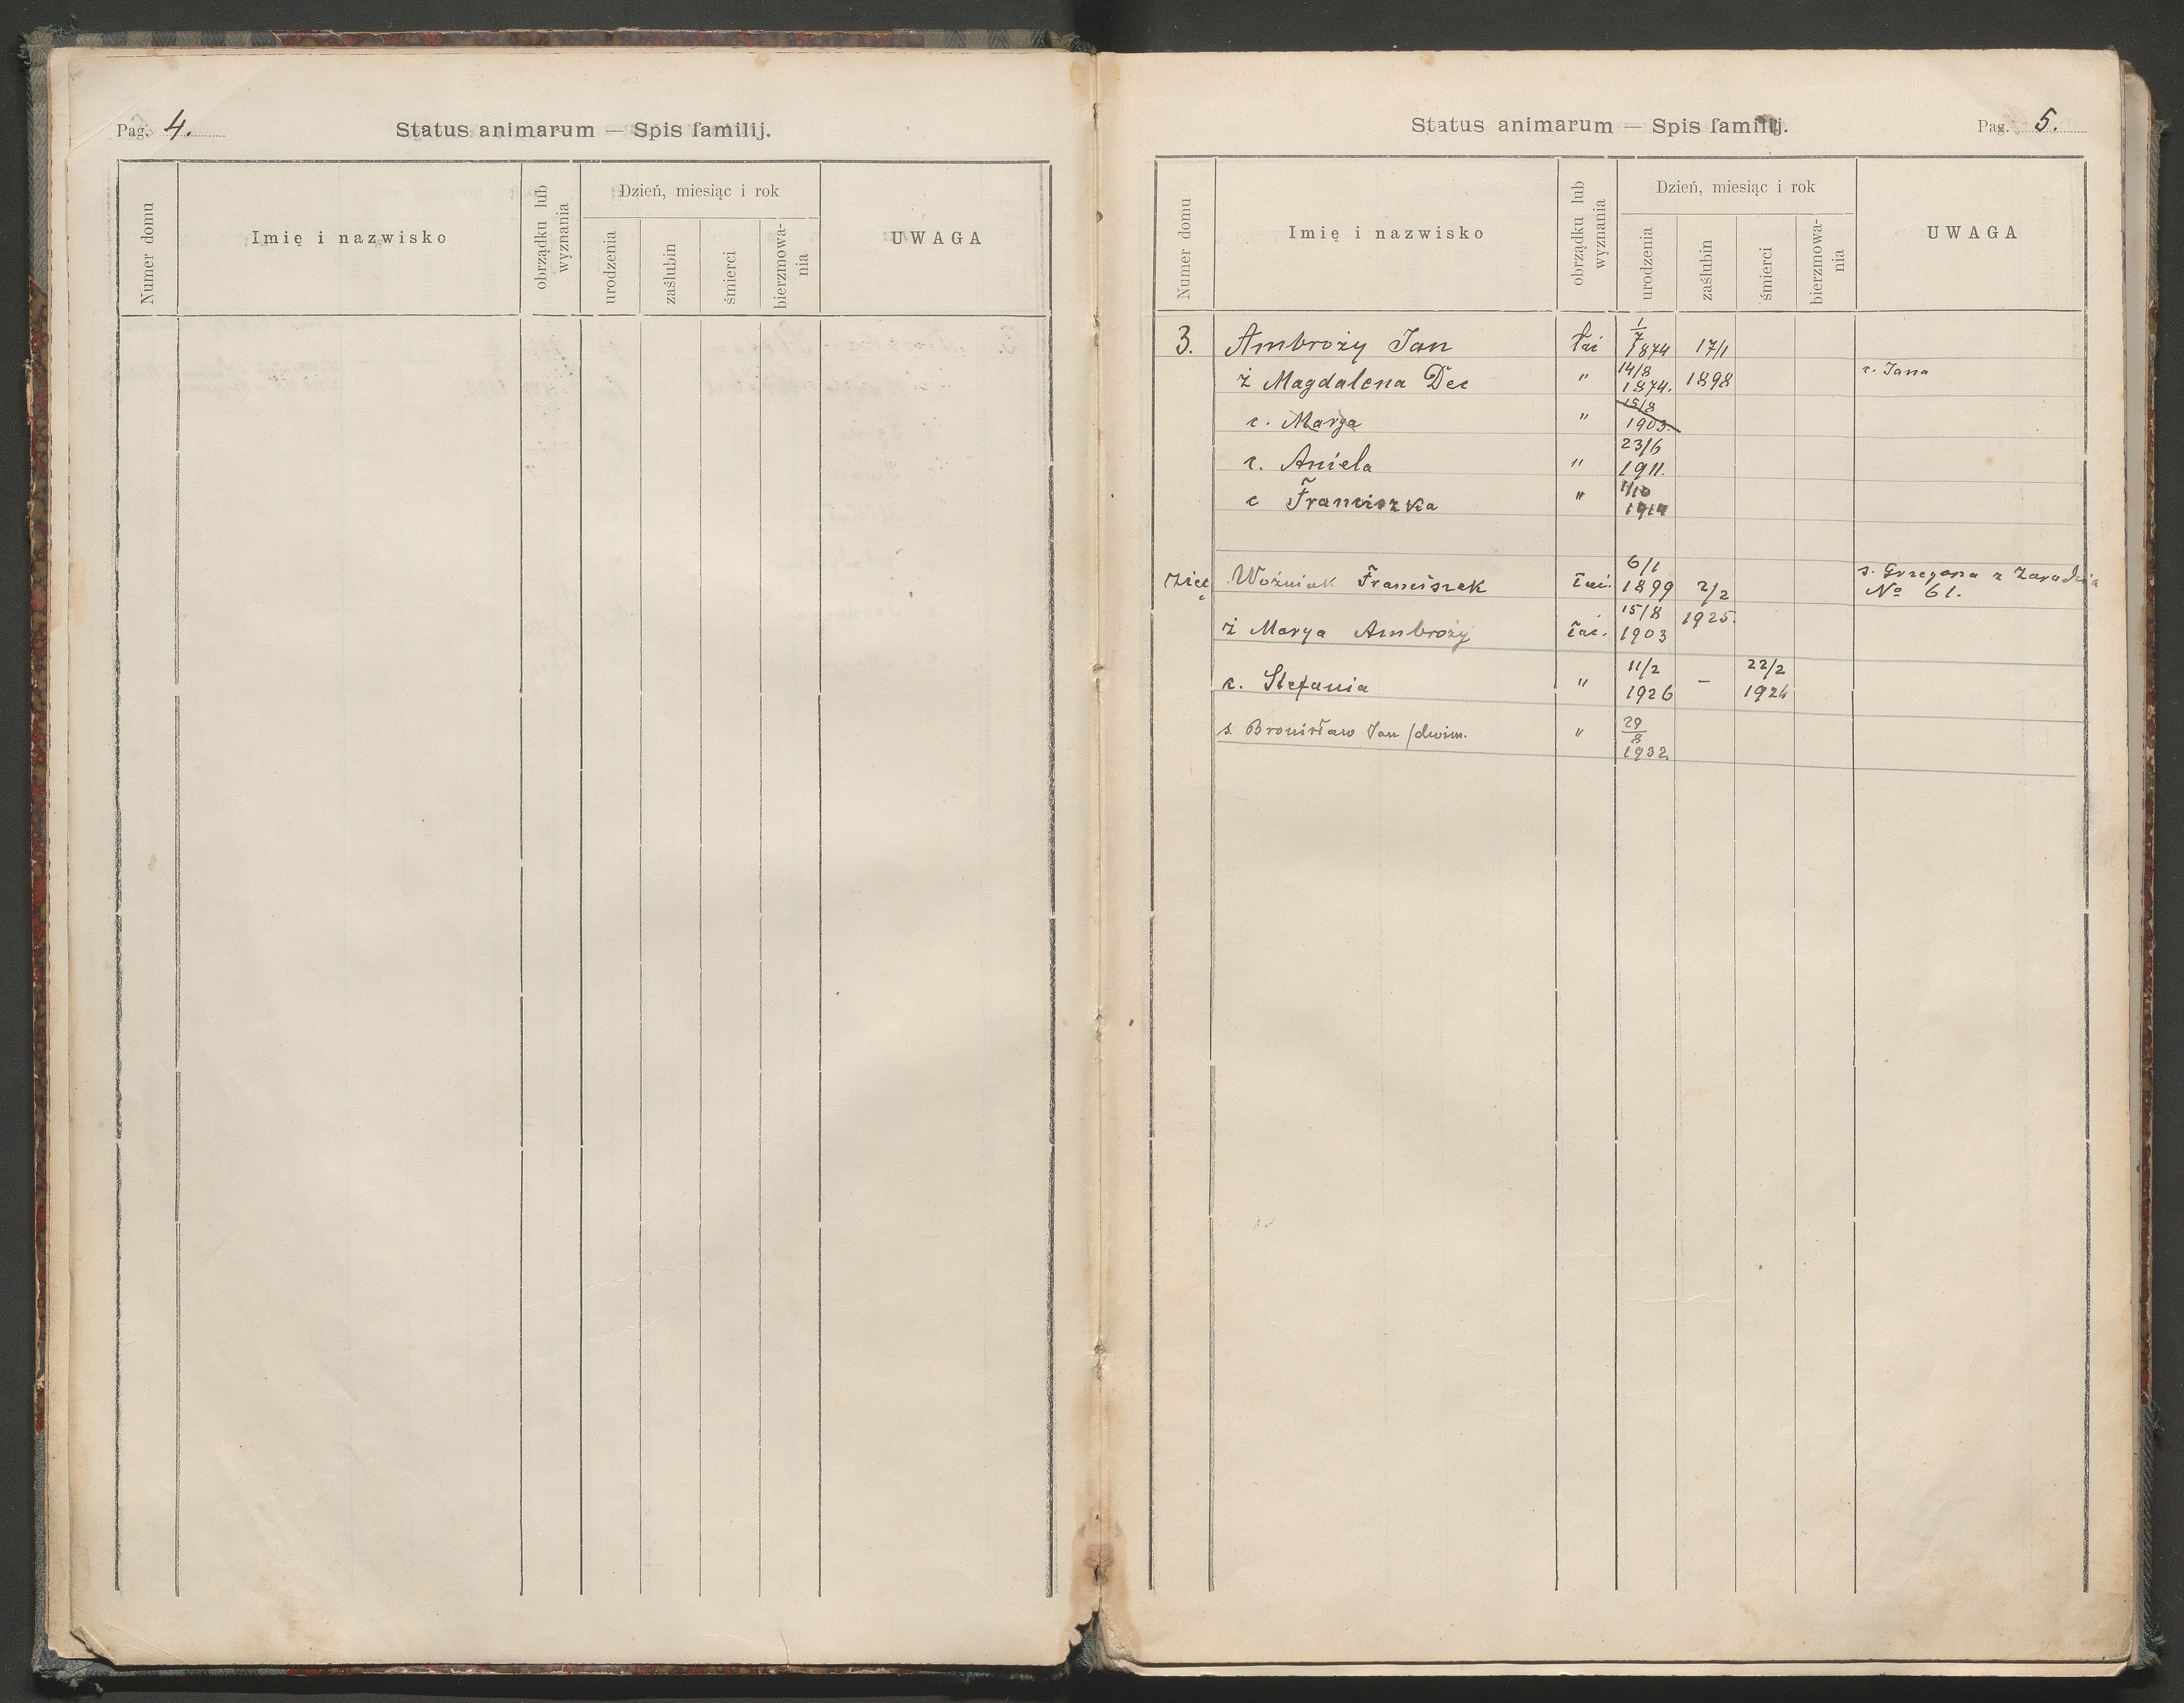 Pag. 4.
Status animarum — Spis familij.
Numer domu
Imię i nazwisko
obrządku lub wyznania
Dzień, miesiąc i rok
urodzenia
zaślubin
śmierci
bierzmowa-
nia
UWAGA
Status animarum — Spis familij.
Pag. 5.
Numer domu
Imię i nazwisko
obrządku lub wyznania
Dzień, miesiąc i rok
urodzenia
zaślubin
śmierci
bierzmowa-
nia
UWAGA
3. Ambroży Jan łać 1/7 1874 17/1
ż Magdalena Dec " 14/8 1874. 1898 c. Jana
c. Marya " 15/8 1903.
c. Aniela " 23/6 1911.
c Franciszka " 1/10 1914
zięć Woźniak Franciszek łać. 6/1 1899 2/2 s. Grzegorza z
No 61.
ż Marya Ambroży łać. 15/8 1903 1925.
c. Stefania " 11/2 1926 – 22/2
s. Bronisław Jan /dwóim. " 29/8 1932.